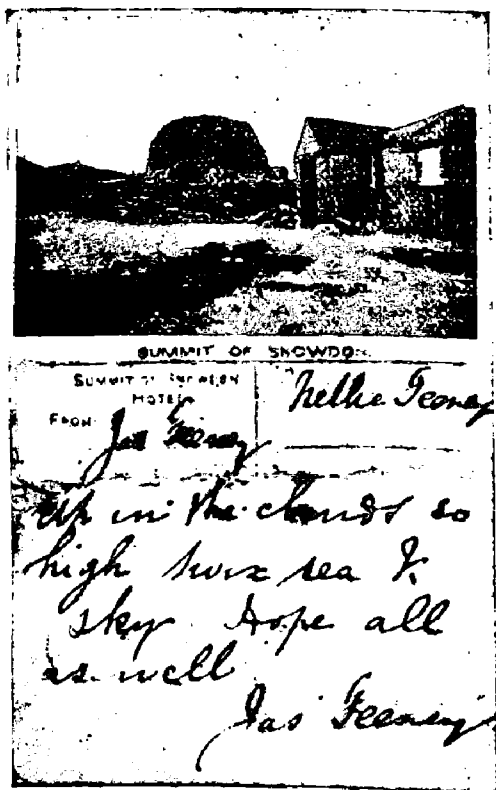 SUMMIT OF SNOWDON.
SUMMIT OF SNOWDON
HOTEL
FROM
Jas Feeney
Nellie Feeney
Up in the clouds so
high twix sea &
sky Hope all
as well
Jas Feeney